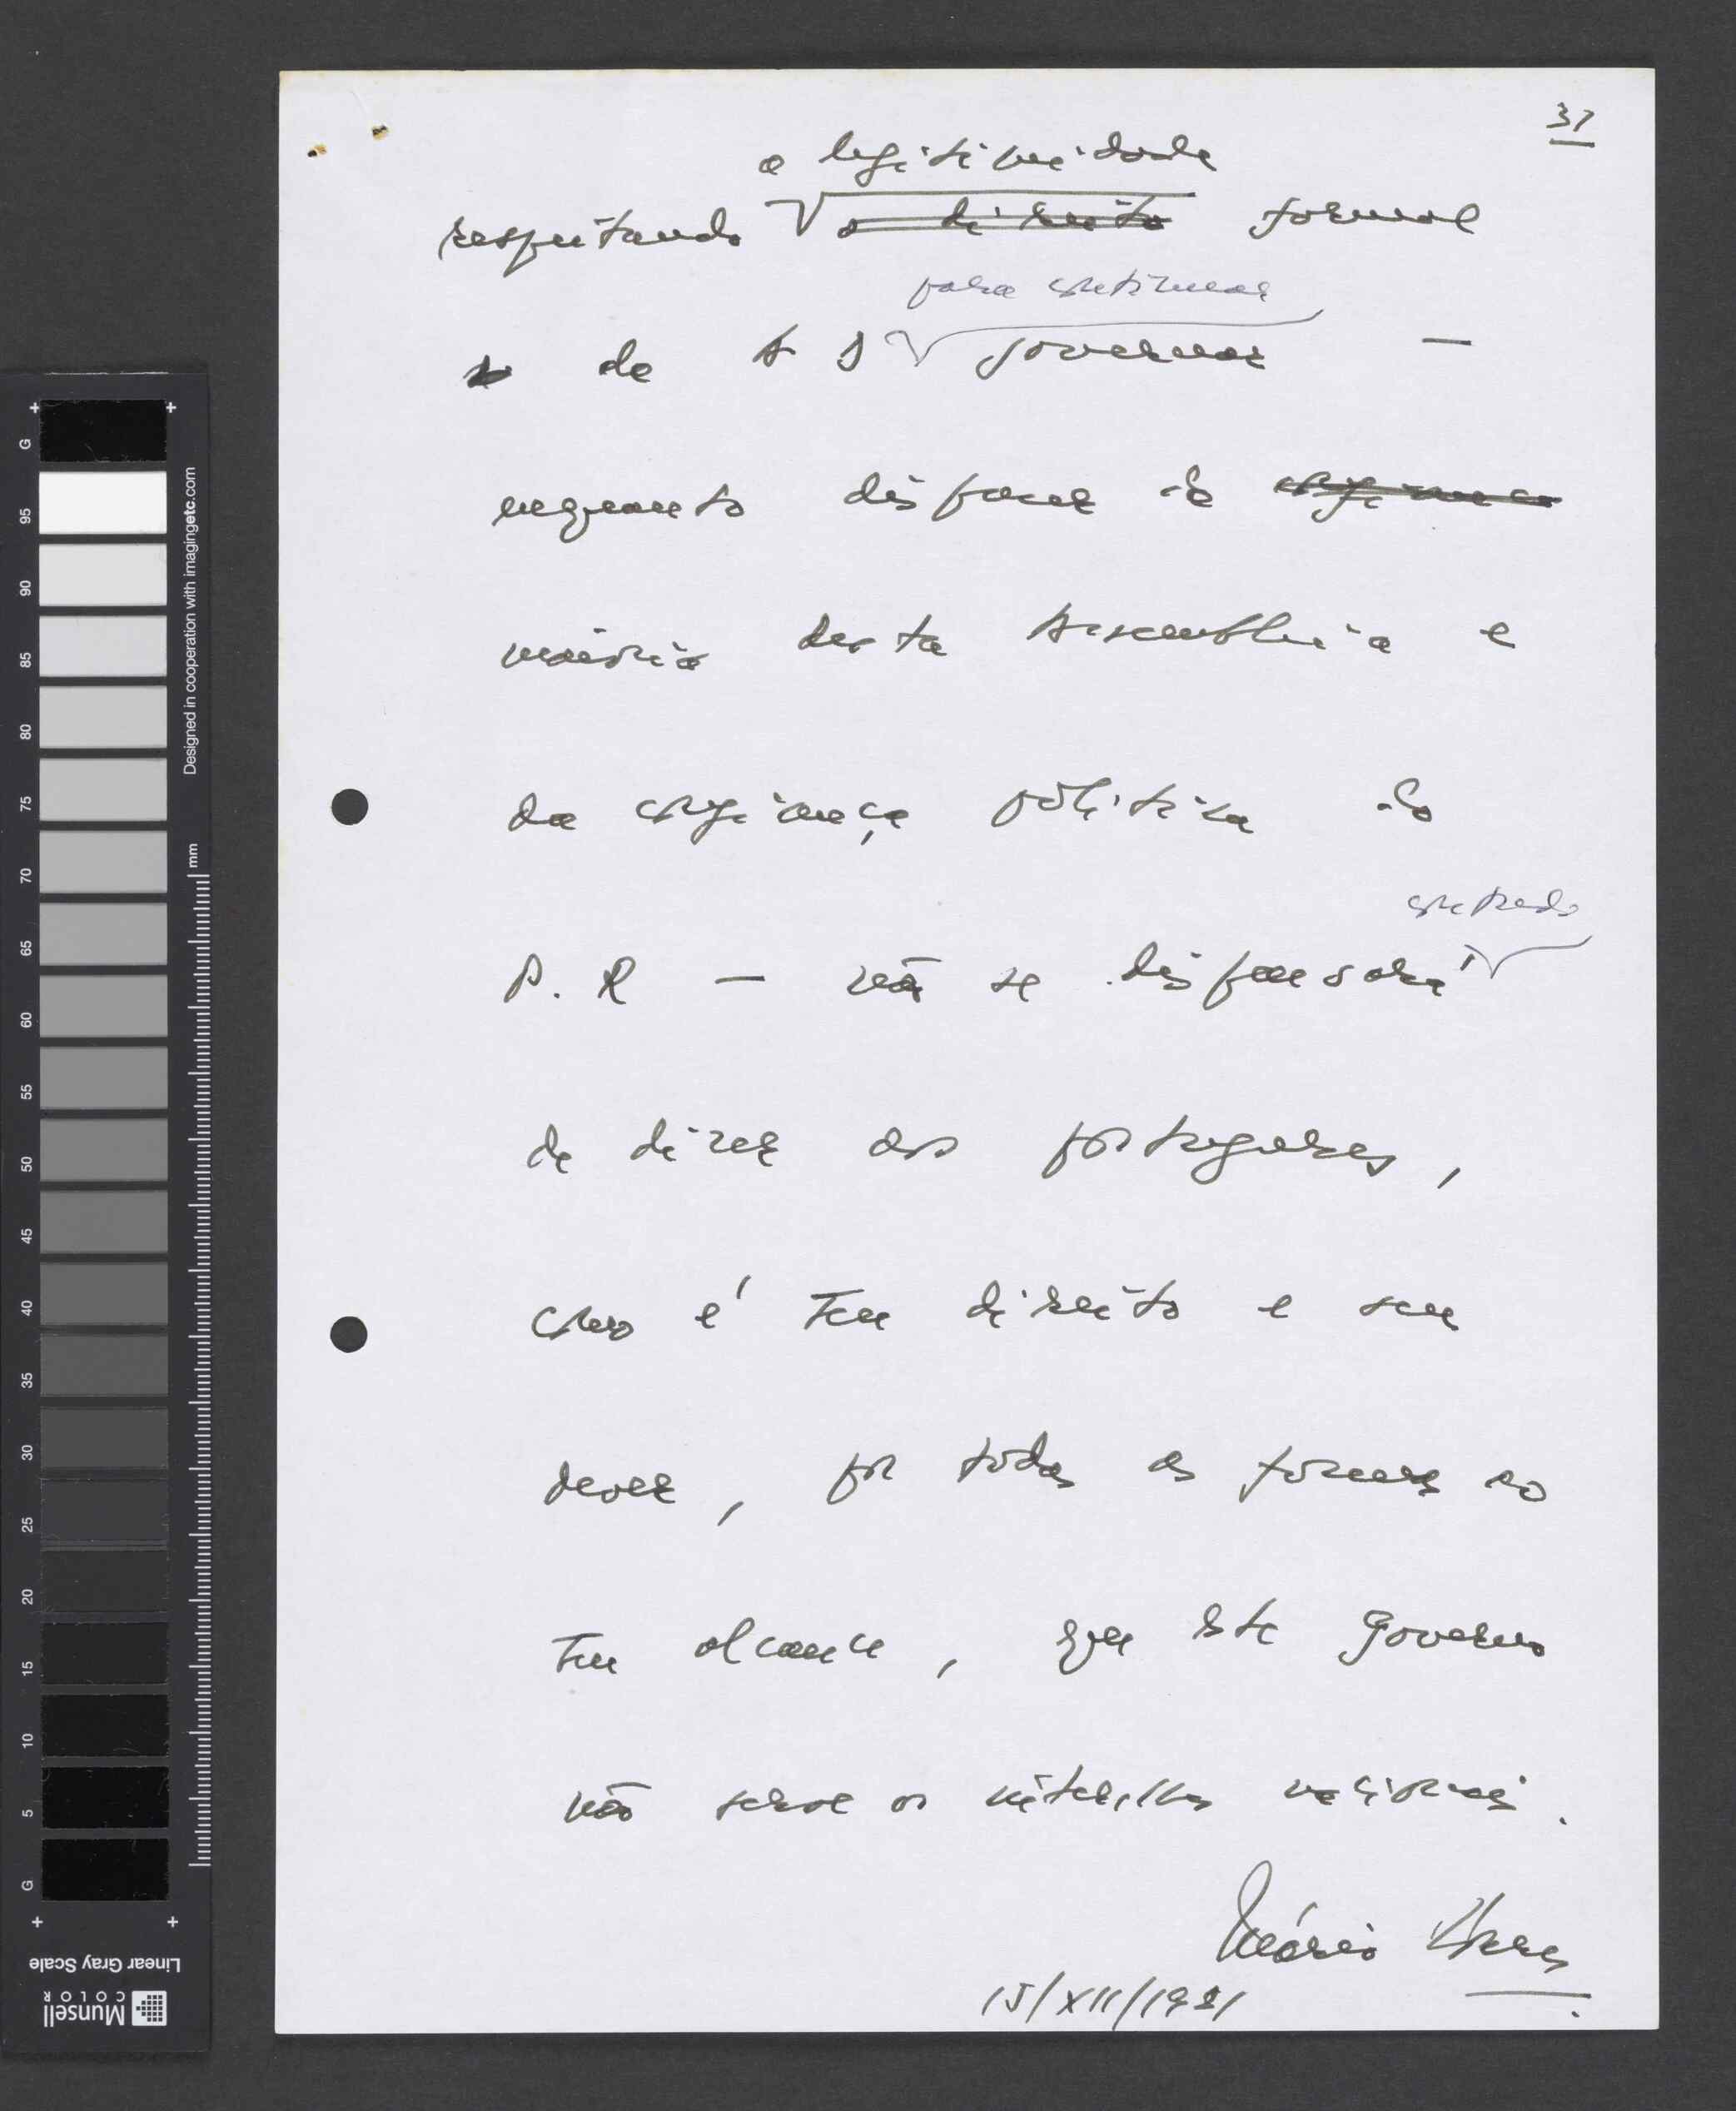 37
a legitimidade
respeitando o direito formal
para continuar
de A D governar —
enquanto dispuser de confiança
maioria desta Assembleia e
da confiança política do
contudo
P. R — não se dispensará
de dizer aos portugueses,
como é seu direito e seu
dever, por todas as formas ao
seu alcance, que este Governo
não serve os interesses nacionais.
Mário Soares
15/XII/1981
G
95
90
85
80
75
70
65
60
55
50
45
40
35
30
25
20
15
10
5
G
mm
Designed in cooperation with imagingetc.com
Linear Gray Scale
Munsell
COLOR